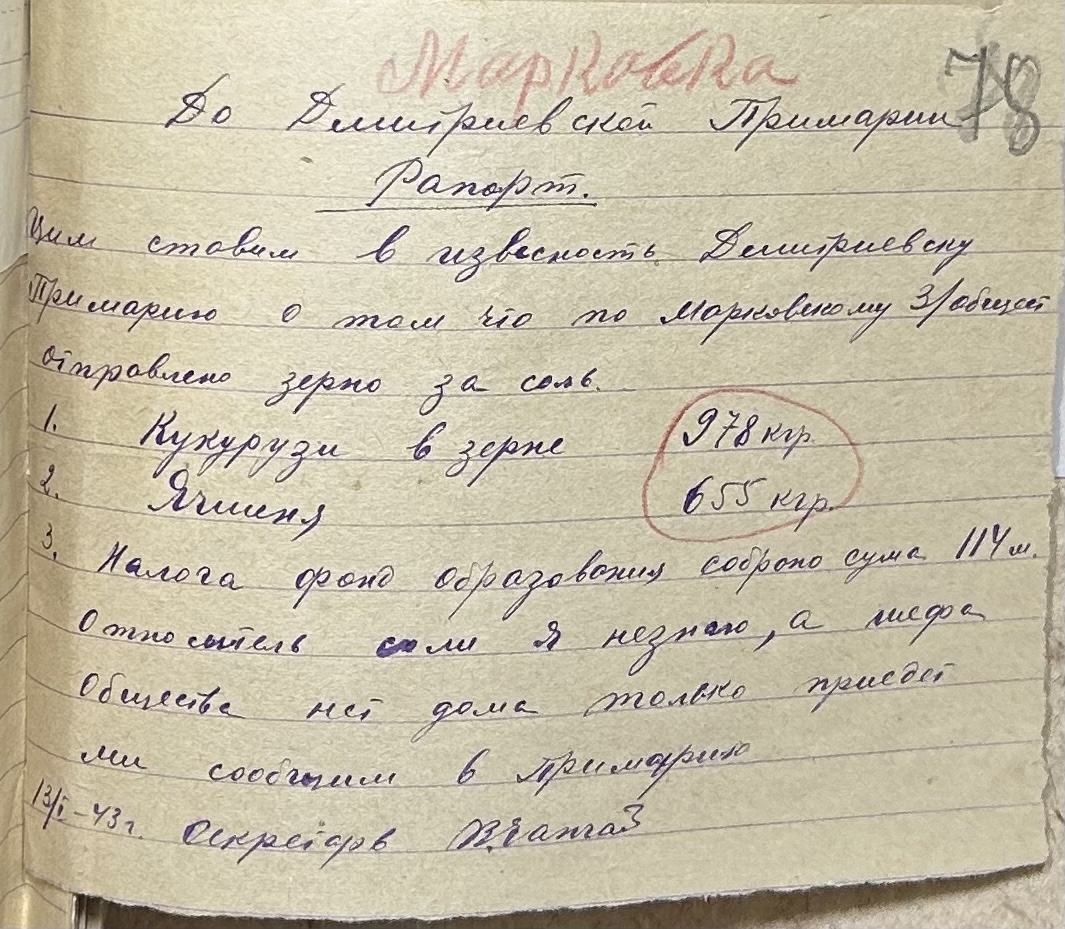 Марковка
78
До Дмитриевской Примарии
Рапорт.
Цим ставим в извесность Дмитриевску
Примарию о том что по Марковскому З/общест
отправлено зерно за соль.
1. Кукурузи в зерне 978 кгр.
2. Ячменя 655 кгр.
3. Налога фонд образования собрано сума 114 м.
Относитель соли я незнаю, а шефа
Общества нет дома только приедет
ми сообщим в примарию
13/I-43 г. Секретарь